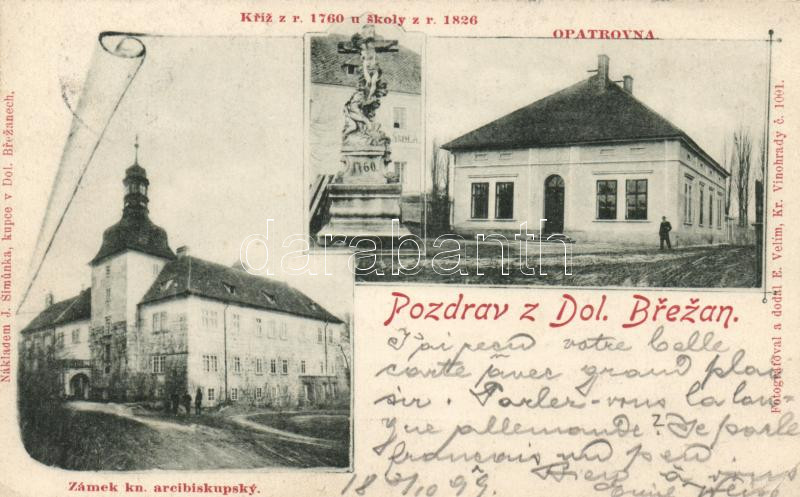 Kříž z r. 1760 u školy z r. 1826
OPATROVNA
ŠKOLA
1760
Nákladem J. Šimůnka, kupce v Dol. Břežanech.
Fotografoval a dodal E. Velím, Kr. Vinohrady č. 1001.
darabanth.com
Pozdrav z Dol. Břežan.
J'ai reçu votre belle
carte avec grand plai
sir. Parlez-vous la lan-
gue allemande? Je parle
francais un peu.
Bien à vous
18 9/10 99.
Zámek kn. arcibiskupský.